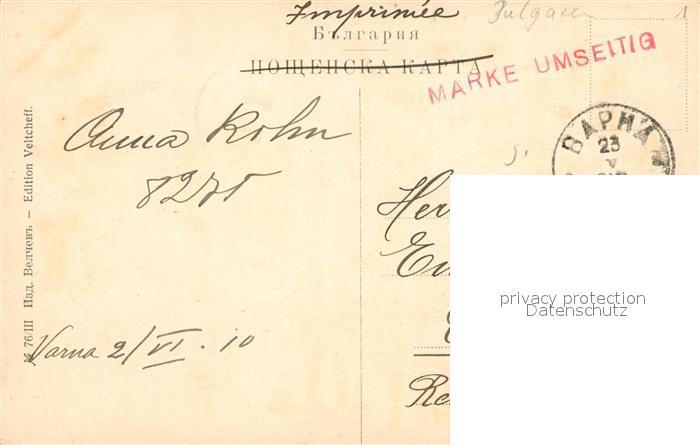 Imprimée
Bulgarien
1
България
ПОЩЕНСКА КАРТА
MARKE UMSEITIG
ВАРНА
23
V
Anna Kohn
8275
Herr
Varna 2/VI. 10
№ 76/III Изд. Велчевъ. — Edition Veltcheff.
privacy protection
Datenschutz